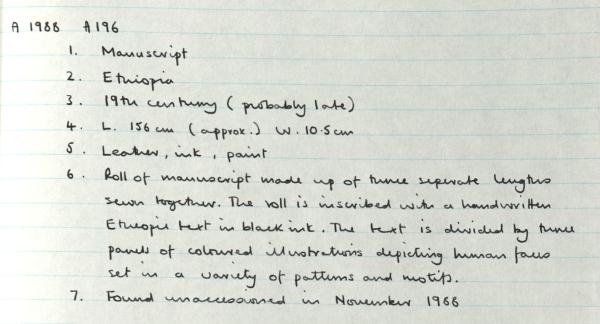 A 1988 A196
1. Manuscript
2. Ethiopia
3. 19th century (probably late)
4. L. 156 cm (approx.) W. 10.5cm
5. Leather, ink, paint
6. Roll of manuscript made up of three seperate lengths
sewn together. The roll is inscribed with a handwritten
Ethiopic text in black ink. The text is divided by three
panels of coloured illustrations depicting human faces
set in a variety of patterns and motifs.
7. Found unaccessioned in November 1988